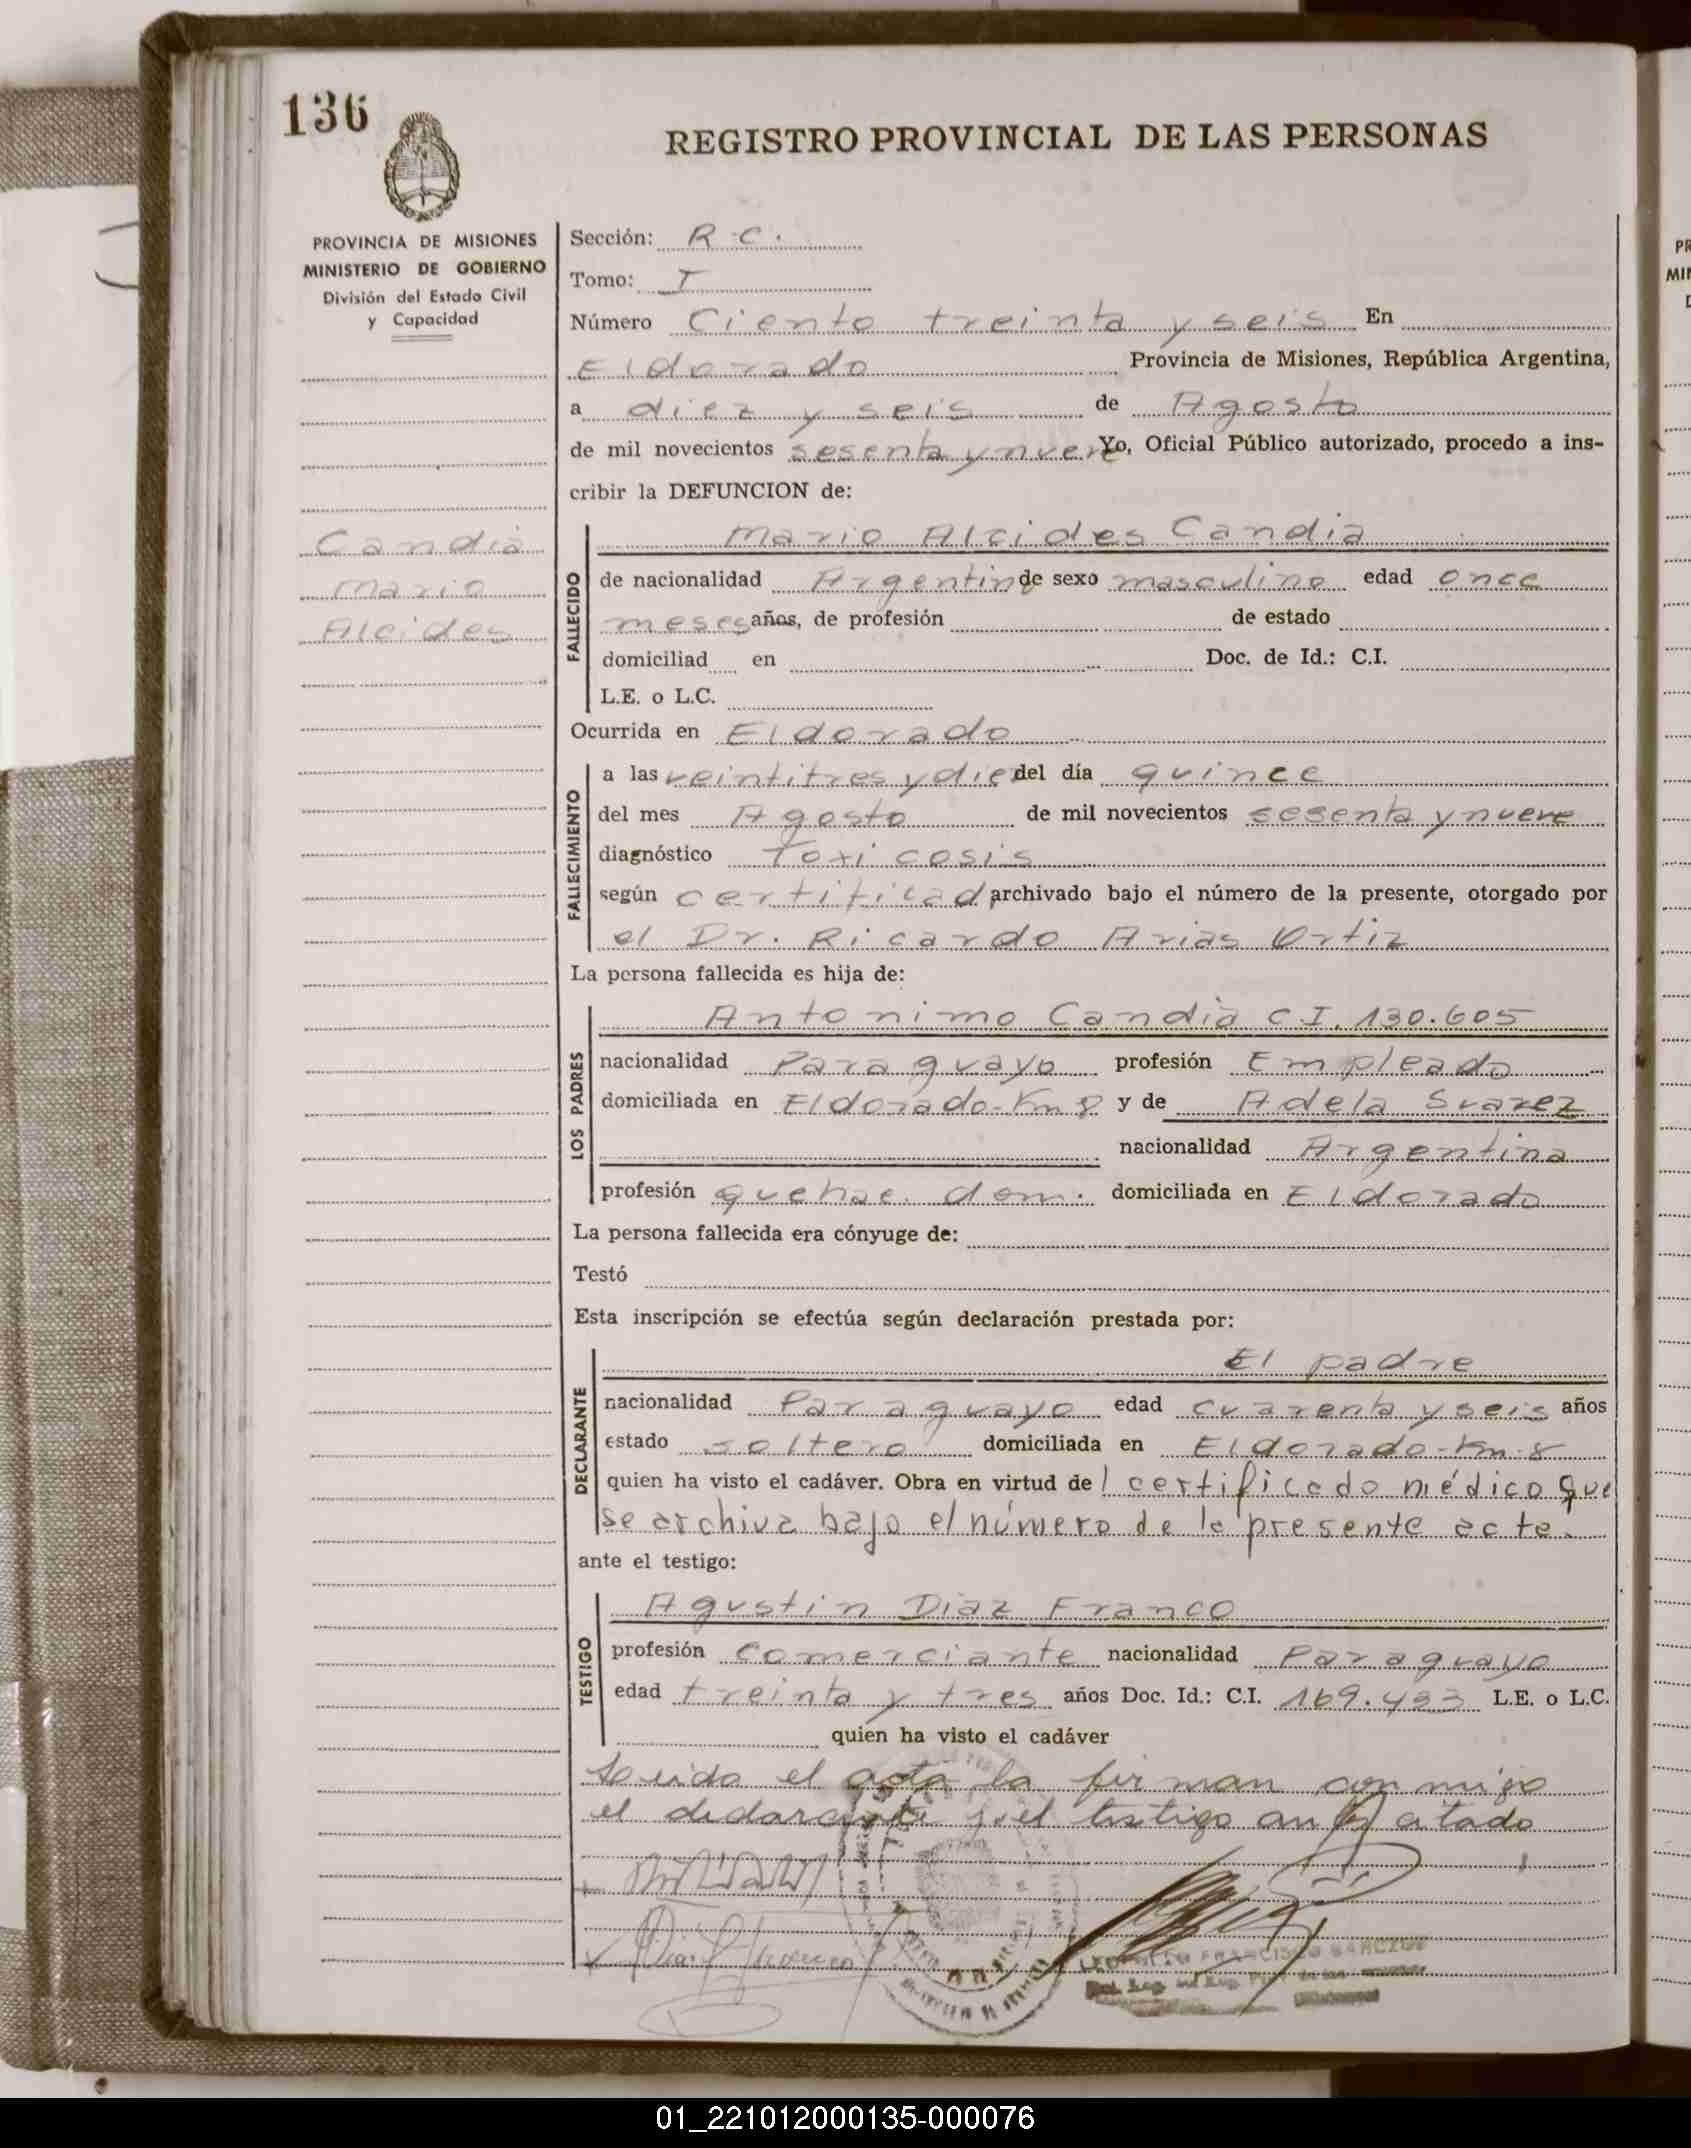 136
REGISTRO PROVINCIAL DE LAS PERSONAS
PROVINCIA DE MISIONES
MINISTERIO DE GOBIERNO
División del Estado Civil
y Capacidad
Candia
Mario
Alcides
Sección: R.C.
Tomo: I
Número Ciento treinta y seis En
Eldorado Provincia de Misiones, República Argentina,
a diez y seis de Agosto
de mil novecientos sesenta y nueve Yo, Oficial Público autorizado, procedo a ins-
cribir la DEFUNCION de:
FALLECIDO
Mario Alcides Candia
de nacionalidad Argentino de sexo masculino edad once
meses años, de profesión de estado
domiciliad en Doc. de Id.: C.I.
L.E. o L.C.
Ocurrida en Eldorado
FALLECIMIENTO
a las veintitres y diez del día quince
del mes Agosto de mil novecientos sesenta y nueve
diagnóstico Toxicosis
según certificado archivado bajo el número de la presente, otorgado por
el Dr. Ricardo Arias Ortiz
La persona fallecida es hija de:
LOS PADRES
Antonimo Candia C.I. 130.605
nacionalidad Paraguayo profesión Empleado
domiciliada en Eldorado-Km 8 y de Adela Suarez
nacionalidad Argentina
profesión quehac. dom. domiciliada en Eldorado
La persona fallecida era cónyuge de:
Testó
Esta inscripción se efectúa según declaración prestada por:
DECLARANTE
El padre
nacionalidad Paraguayo edad cuarenta y seis años
estado soltero domiciliada en Eldorado-Km-8
quien ha visto el cadáver. Obra en virtud de l certificado médico que
se archiva bajo el número de la presente acta.
ante el testigo:
TESTIGO
Agustin Diaz Franco
profesión Comerciante nacionalidad Paraguayo
edad treinta y tres años Doc. Id.: C.I. 169.433 L.E. o L.C.
quien ha visto el cadáver
Leida el acta la firman conmigo
el declarante y el testigo antes citado
FRANCISCO
01_221012000135-000076